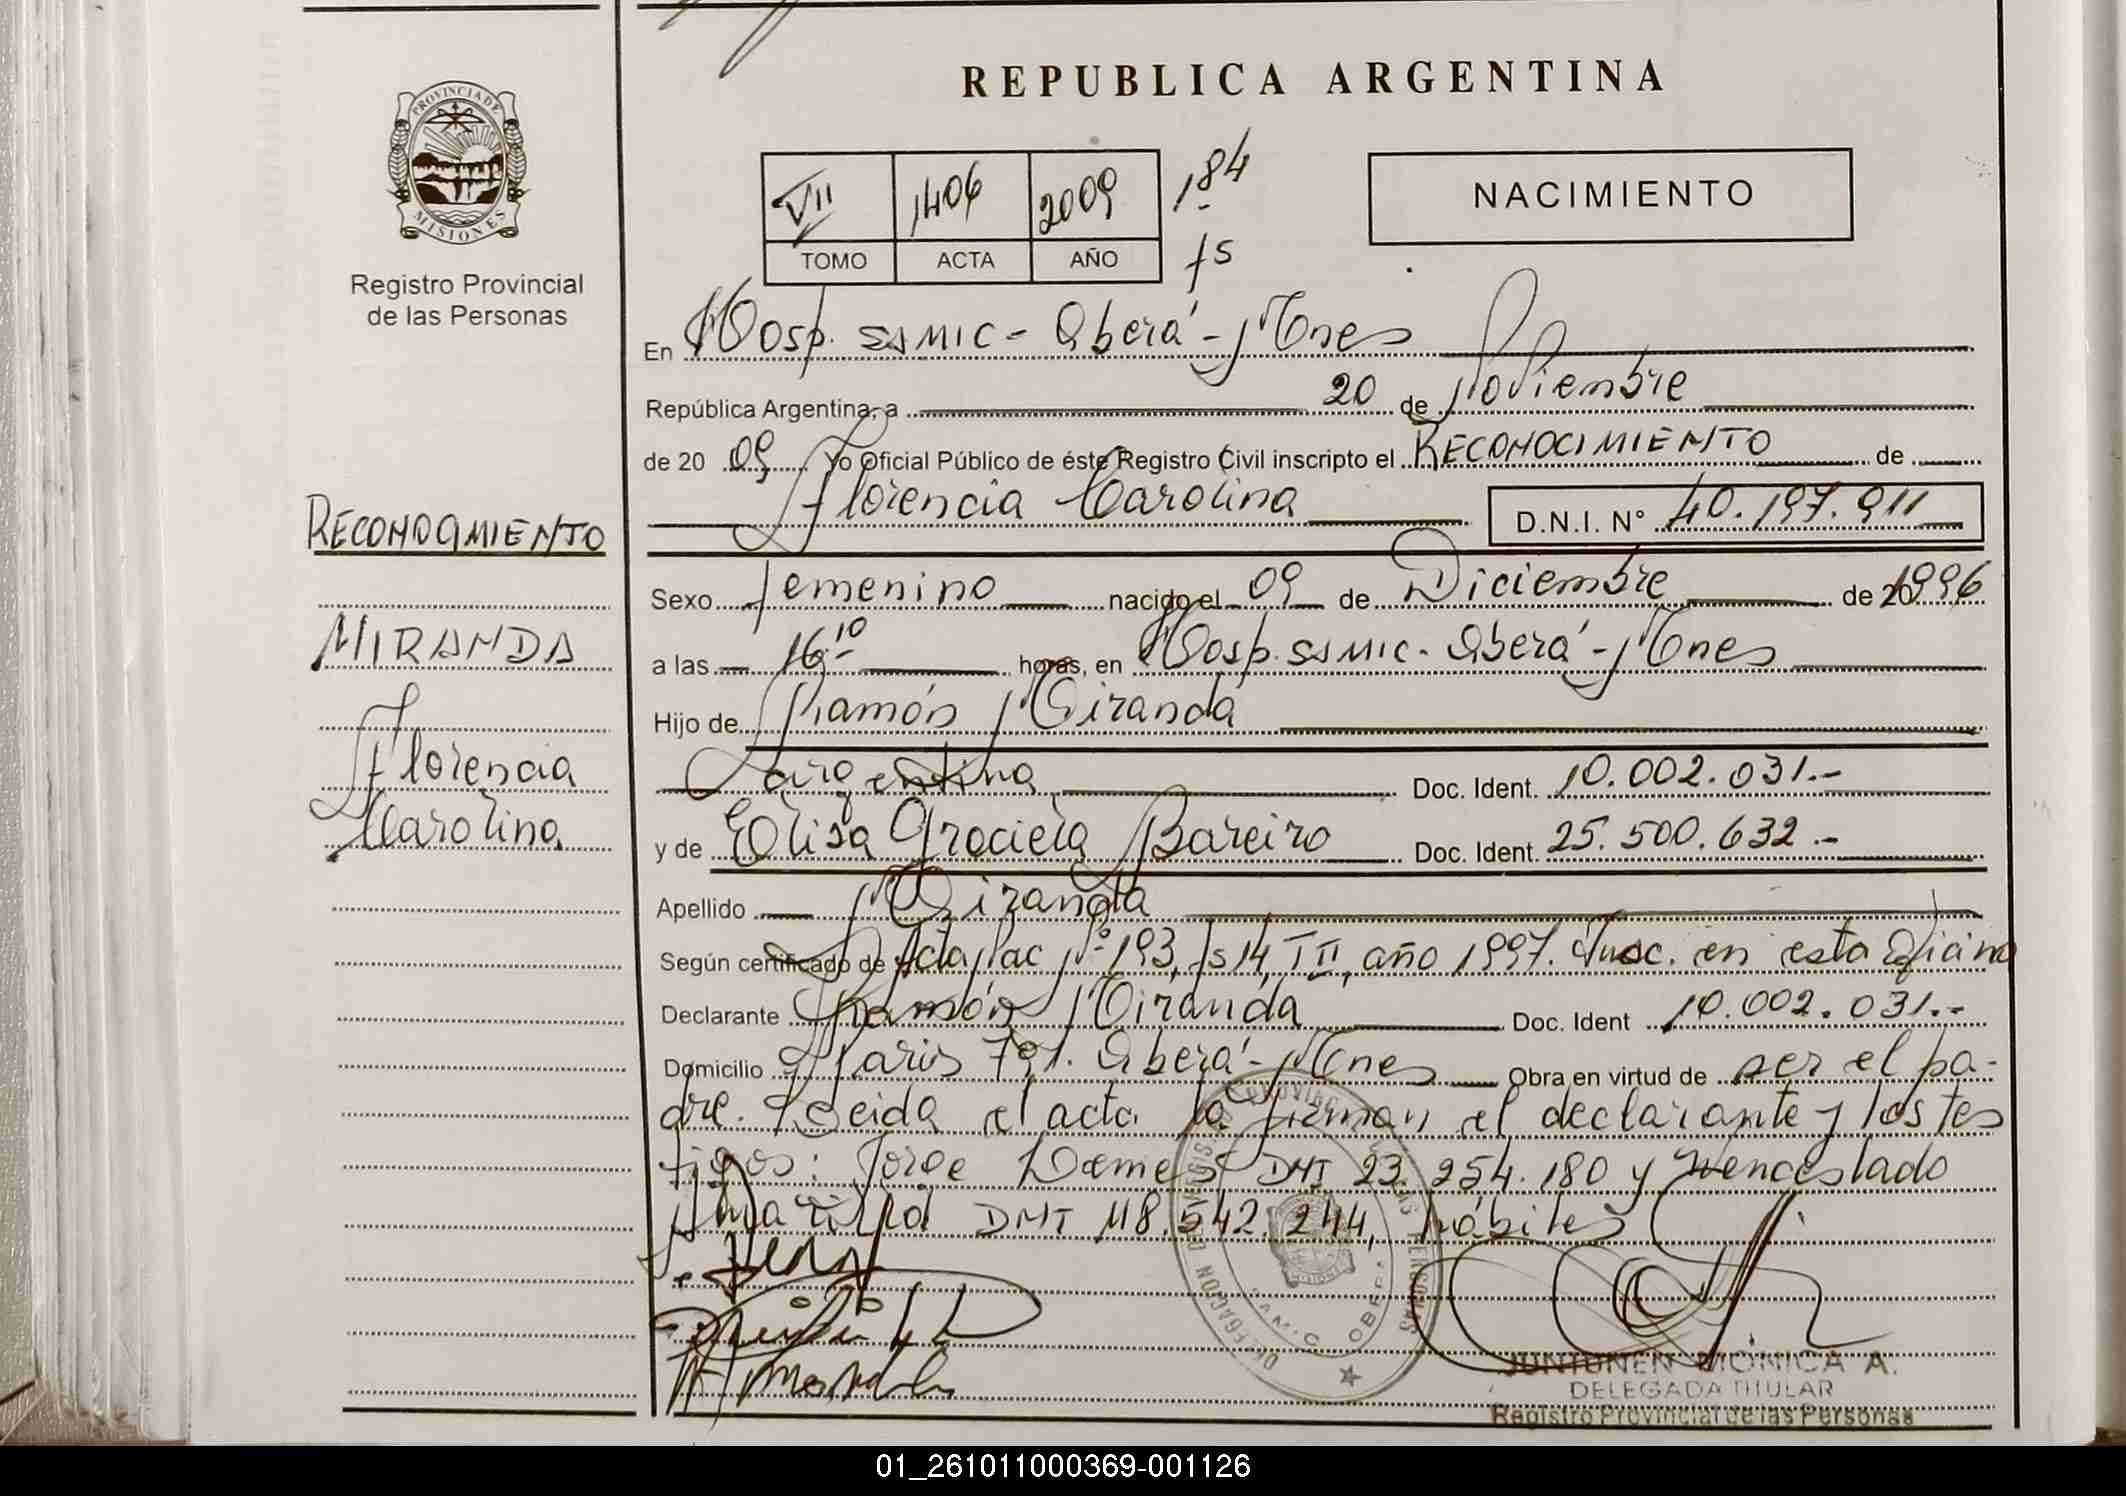 REPUBLICA ARGENTINA
PROVINCIA DE MISIONES
Registro Provincial
de las Personas
VII 1406 2009 184
TOMO ACTA AÑO fs
NACIMIENTO
En Hosp. SAMIC - Oberá - Mnes
República Argentina, a 20 de Noviembre
de 2009 Yo Oficial Público de éste Registro Civil inscripto el RECONOCIMIENTO de
Florencia Carolina D.N.I. N° 40.197.911
RECONOCIMIENTO
MIRANDA
Florencia
Carolina
Sexo femenino nacido el 09 de Diciembre de 1996
a las 16 10 horas, en Hosp. SAMIC - Oberá - Mnes
Hijo de Ramón Miranda
Argentina Doc. Ident. 10.002.031.-
y de Elisa Graciela Bareiro Doc. Ident. 25.500.632.-
Apellido Miranda
Según certificado de Acta Nac N° 193, fs 14, T II, año 1997. Insc. en esta Oficina
Declarante Ramón Miranda Doc. Ident 10.002.031.-
Domicilio Paris 791. Oberá - Mnes Obra en virtud de ser el pa-
dre. Leida el acta la firman el declarante y los tes
tigos: Jorge DNI 23.254.180 y Wenceslado
DNI M8.542.244, hábiles
DELEGACION OBERA
JUNTUNEN MONICA A.
DELEGADA TITULAR
Registro Provincial de las Personas
01_261011000369-001126